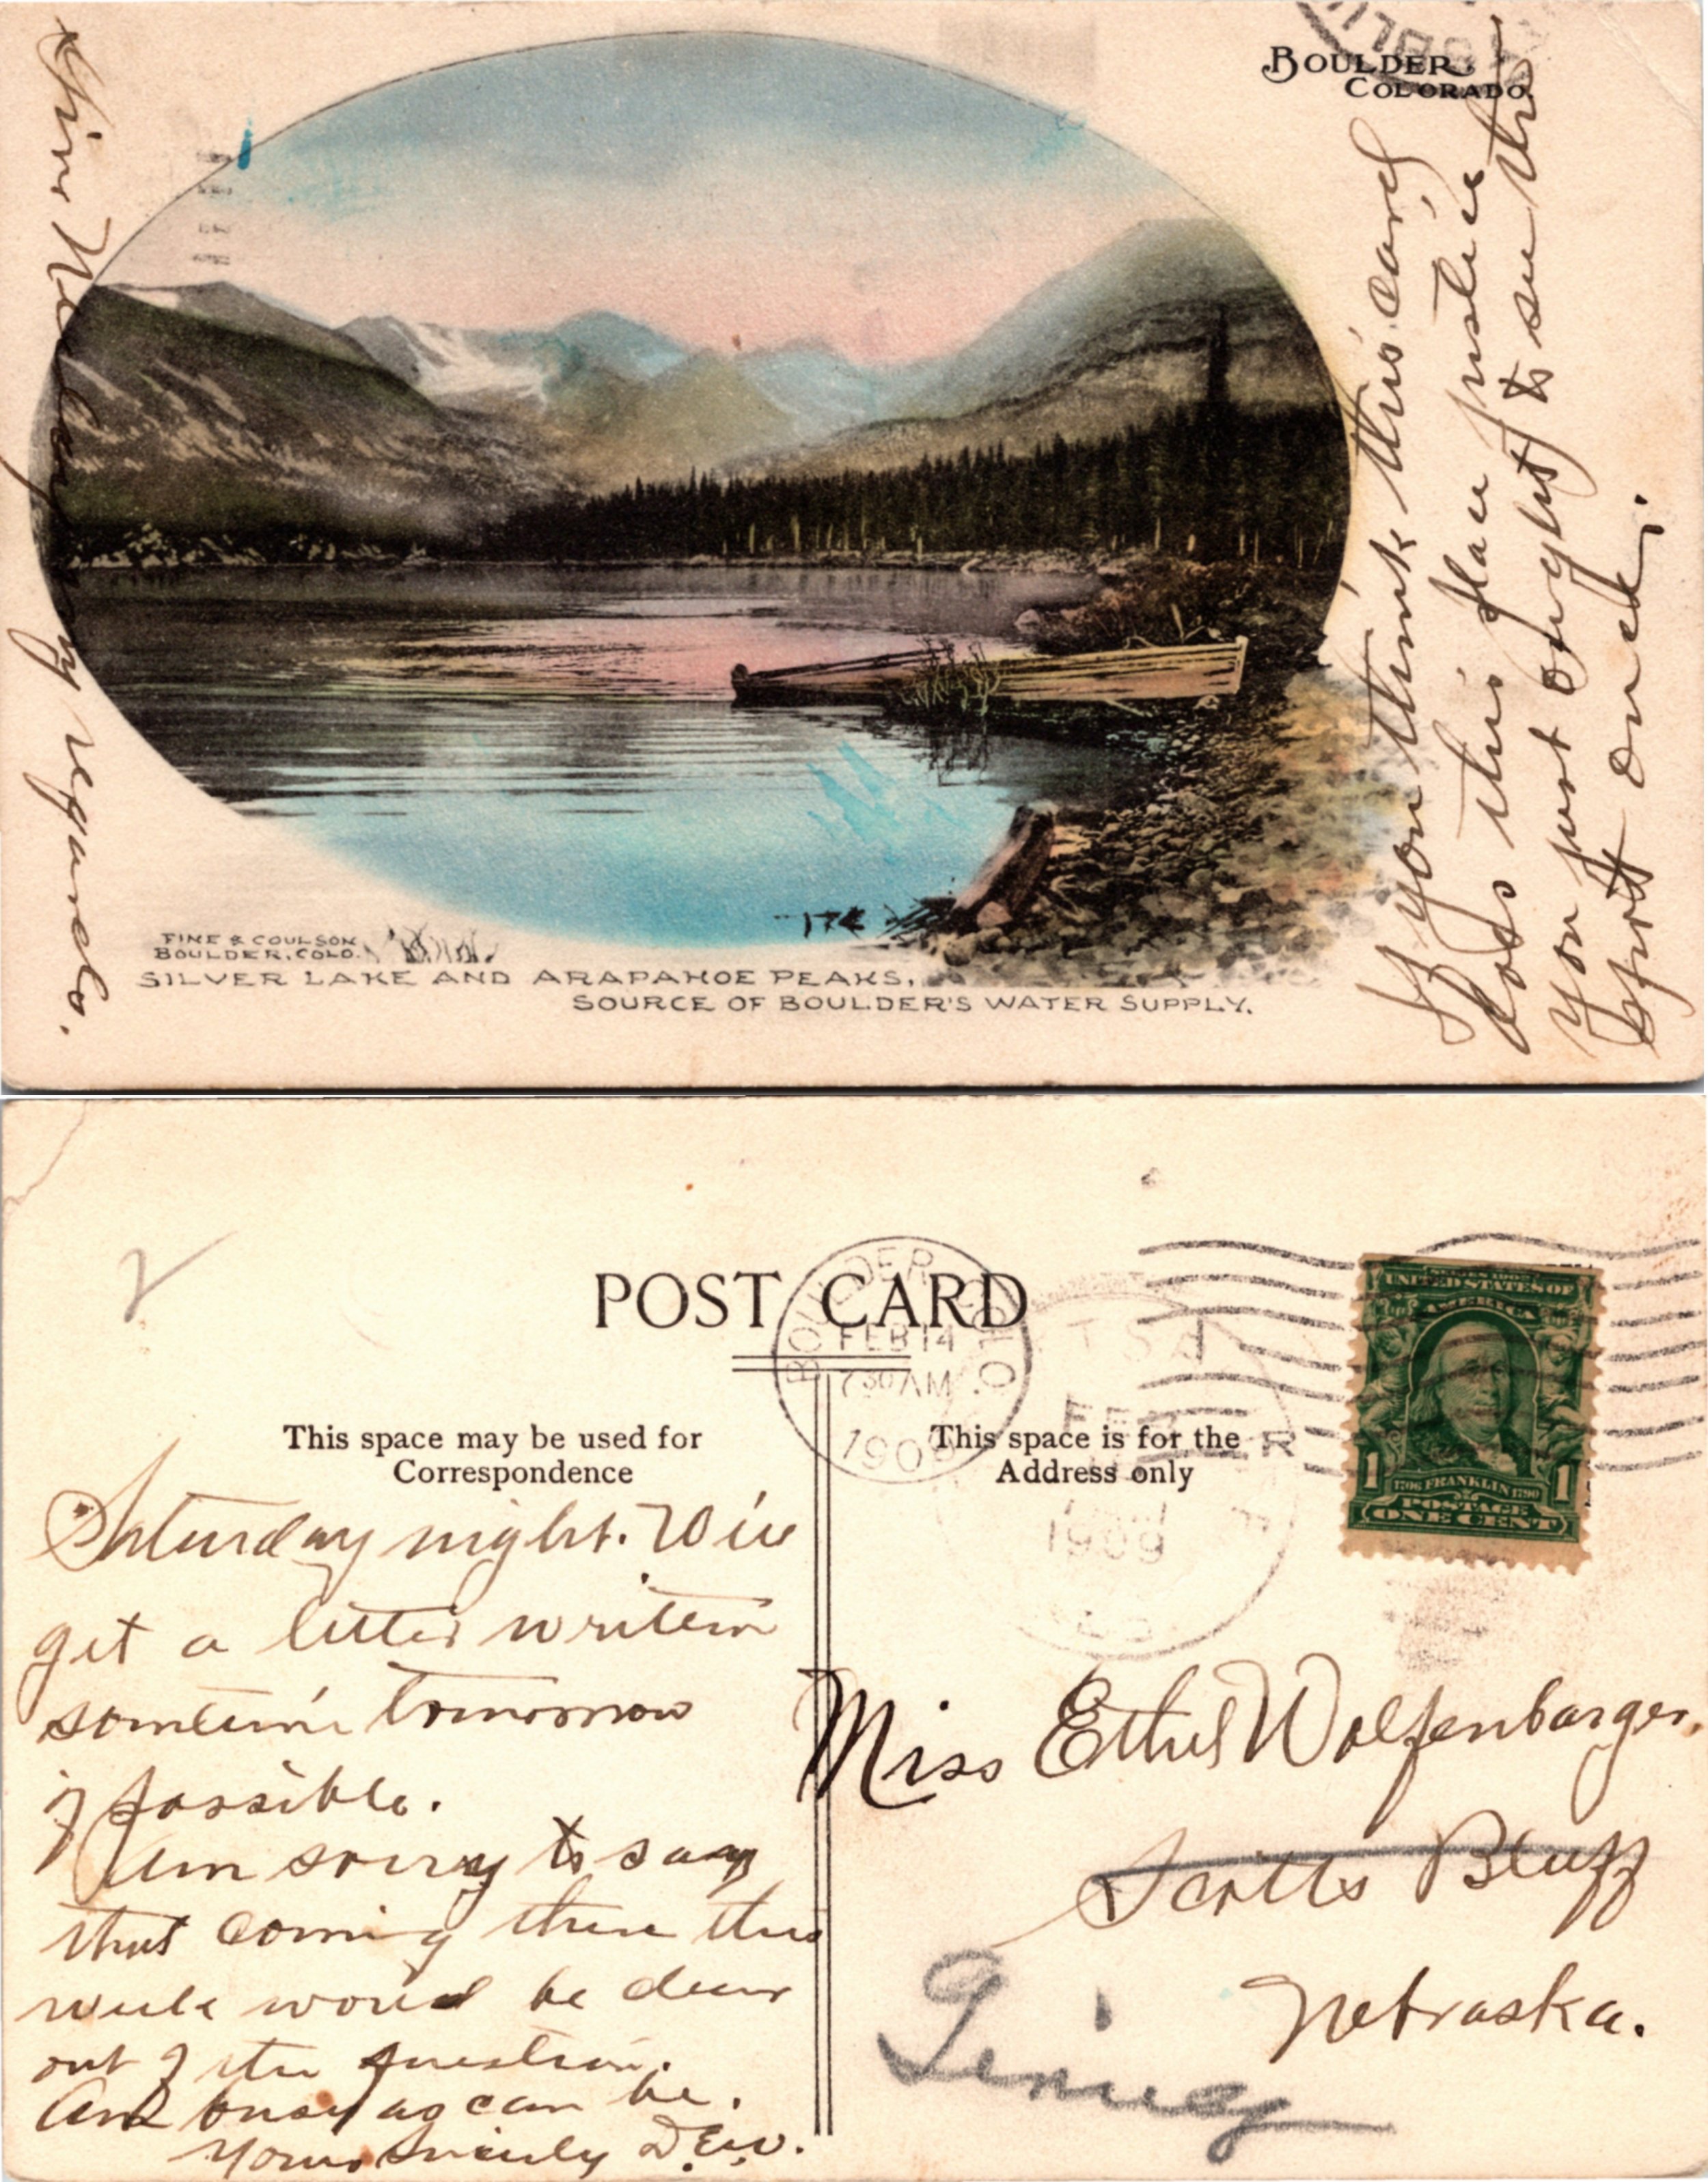 BOULDER,
COLORADO.
If you think this card
does this place justice
you just ought to see the
spot once.
Give Nellie my regards.
FINE & COULSON
BOULDER, COLO.
SILVER LAKE AND ARAPAHOE PEAKS,
SOURCE OF BOULDER'S WATER SUPPLY.
2
POST CARD
BOULDER COLO.
FEB 14
7 30 AM
1909
FEB
1909
This space may be used for
Correspondence
This space is for the
Address only
SERIES 1902
UNITED STATES OF
AMERICA
1 1706 FRANKLIN 1790 1
POSTAGE
ONE CENT
Saturday night. Will
get a letter writen
sometime tomorrow
if possible.
Am sorry to say
that coming there this
week would be clear
out of the question.
And busy as can be.
Yours Sincerly D.E.W.
Miss Ethel Wolfenbarger,
Scotts Bluff
Nebraska.
Gering